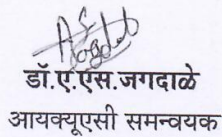 डॉ.ए.एस.जगदाळे
आयक्यूएसी समन्वयक